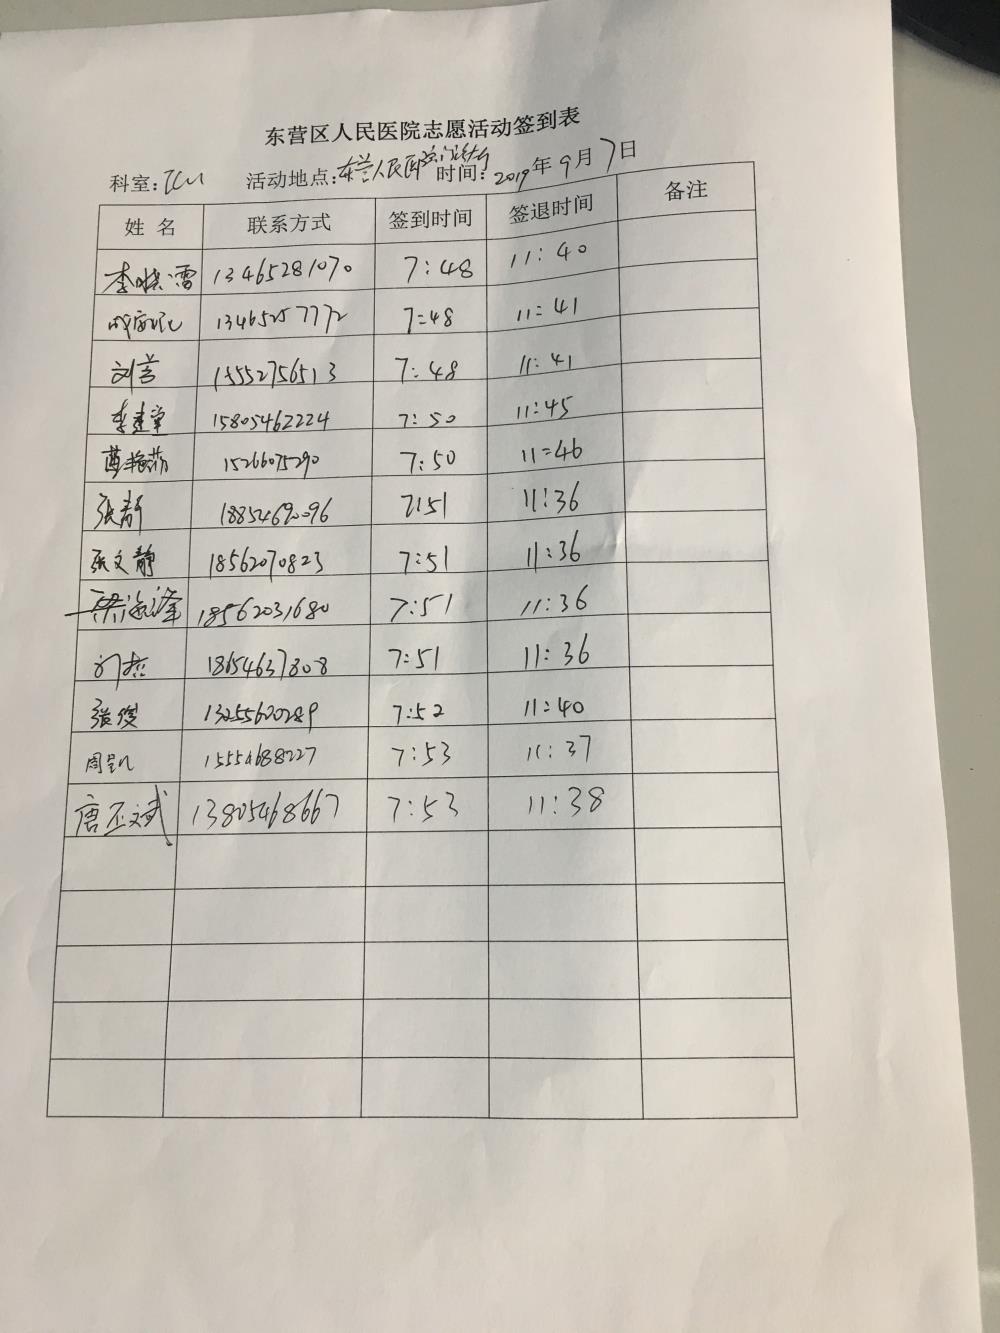 东营区人民医院志愿活动签到表
科室: ICU 活动地点: 东营人民医院门诊大厅 时间: 2019年9月7日
姓 名 联系方式 签到时间 签退时间 备注
李晓雪 13465281070 7:48 11:40
13465257772 7:48 11:41
刘芸 15552756513 7:48 11:41
李建堂 15805462224 7:50 11:45
15266075290 7:50 11:46
张静 18854690096 7:51 11:36
张文静 18562070823 7:51 11:36
18562031680 7:51 11:36
18654637808 7:51 11:36
张俊 13255620289 7:52 11:40
周 15554688227 7:53 11:37
唐丕文武 13805468667 7:53 11:38